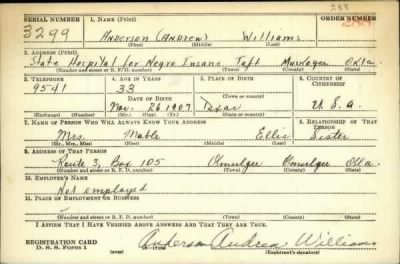 288
SERIAL NUMBER 1. NAME (Print) ORDER NUMBER
3299 Anderson (Andrew) Williams
(First) (Middle) (Last)
2. ADDRESS (Print)
State Hospital for Negro Insane Taft Muskogee Okla.
(Number and street or R. F. D. number) (Town) (County) (State)
3. TELEPHONE 4. AGE IN YEARS 5. PLACE OF BIRTH 6. COUNTRY OF CITIZENSHIP
9541 33
DATE OF BIRTH (Town or county)
Nov. 26, 1907 Texas U S a
(Exchange) (No.) (Mo.) (Day) (Yr.) (State or country)
7. NAME OF PERSON WHO WILL ALWAYS KNOW YOUR ADDRESS 8. RELATIONSHIP OF THAT PERSON
Mrs. Mable Ellis Sister
(Mr., Mrs., Miss) (First) (Middle) (Last)
9. ADDRESS OF THAT PERSON
Route 3, Box 105 Okmulgee Okmulgee Okla.
(Number and street or R. F. D. number) (Town) (County) (State)
10. EMPLOYER'S NAME
Not employed
11. PLACE OF EMPLOYMENT OR BUSINESS
(Number and street or R. F. D. number) (Town) (County) (State)
I AFFIRM THAT I HAVE VERIFIED ABOVE ANSWERS AND THAT THEY ARE TRUE.
REGISTRATION CARD
D. S. S. Form 1 (over) Anderson Andrew Williams
(Registrant's signature)